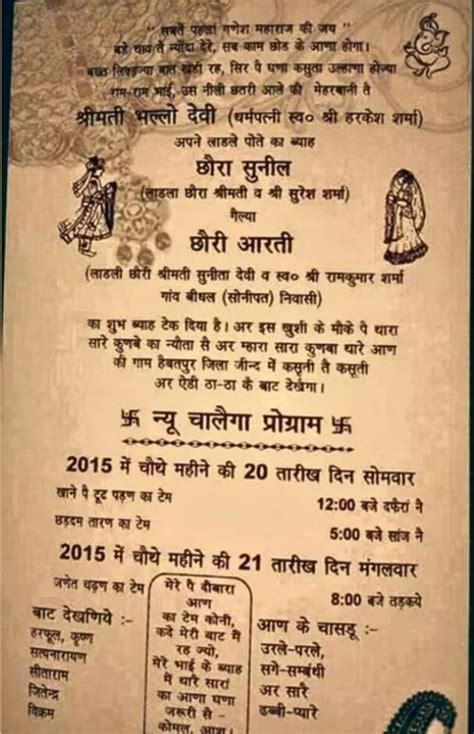 “ सबतैं पहलां गणेश महाराज की जय ”
बड़े चाव तैं न्यौदा देरे, सब काम छोड के आणा होगा।
बख्त लिकड़ज्या बात खड़ी रह, सिर पै घणा कसुता उल्हाणा होज्या
राम-राम भाई, उस नीली छतरी आले की मेहरबानी तै
श्रीमती भल्लो देवी (धर्मपत्नी स्व० श्री हरकेश शर्मा)
अपने लाडले पोते का ब्याह
छौरा सुनील
(लाडला छौरा श्रीमती व श्री सुरेश शर्मा)
गैल्या
छौरी आरती
(लाडली छौरी श्रीमती सुनीता देवी व स्व० श्री रामकुमार शर्मा
गांव बीधल (सोनीपत) निवासी)
का शुभ ब्याह टेक दिया है। अर इस खुशी के मौके पै थारा
सारे कुणबे का न्यौता सै अर म्हारा सारा कुणबा थारे आण
की गाम हैबतपुर जिला जीन्द में कसुती तै कसूती
अर ऐडी ठा-ठा कै बाट देखेगा।
卐 न्यू चालैगा प्रोग्राम 卐
2015 में चौथे महीने की 20 तारीख दिन सोमवार
खाने पै टूट पड़ण का टेम 12:00 बजे दफैरां नै
छड़दम तारण का टेम 5:00 बजे सांज नै
2015 में चौथे महीने की 21 तारीख दिन मंगलवार
जणेत चढ़ण का टेम 8:00 बजे तड़कये
बाट देखणिये :-
हरफूल, कृष्ण
सत्यनारायण
सीताराम
जितेन्द्र
विक्रम
मेरे पै दीबारा
आण
का टेम कोनी,
कदे मेरी बाट में
रह ज्यो,
मेरे भाई के ब्याह
में थारे सारां
का आणा घणा
जरूरी सै -
कोमल, आशु
आण के चासडू :-
उरले-परले,
सगे-सम्बंधी
अर सारै
ढब्बी-प्यारे